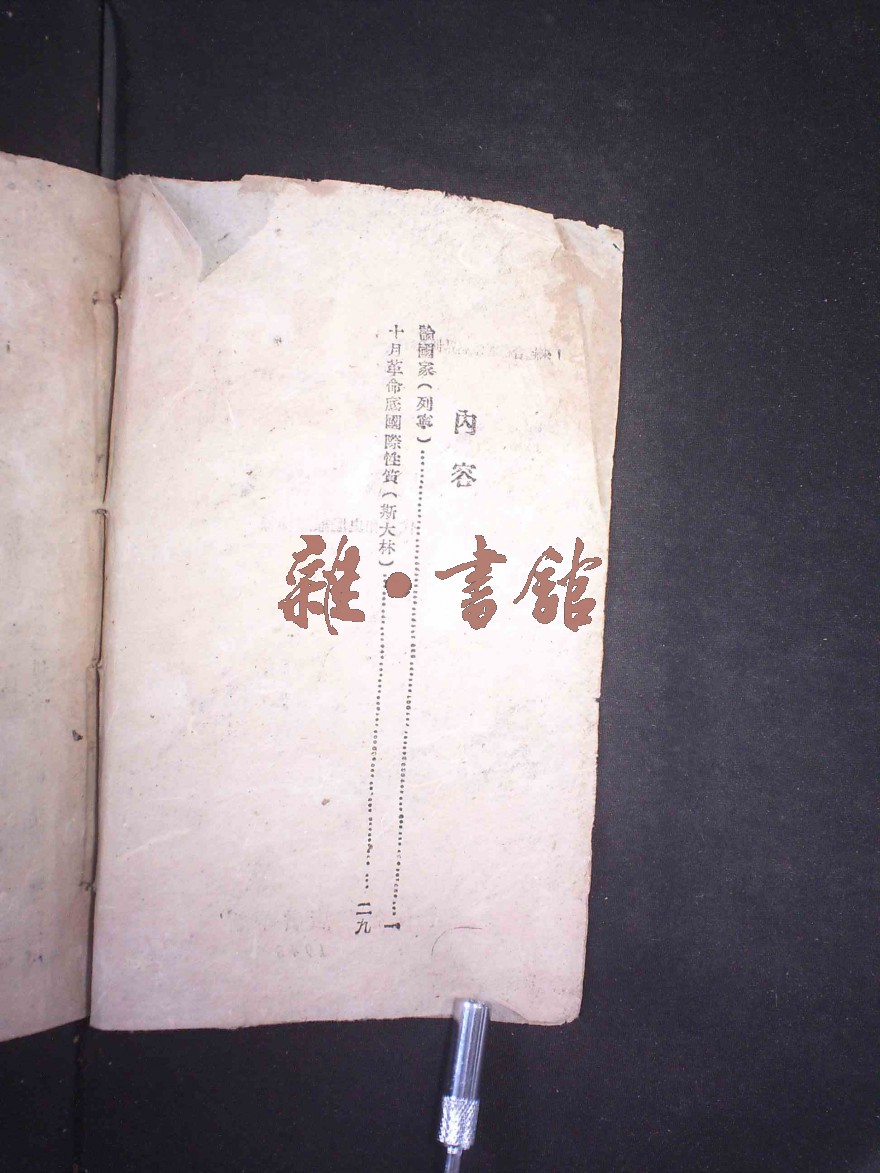 內容
論國家（列寧）…………一
十月革命底國際性質（斯大林）…………二九
雜•書館